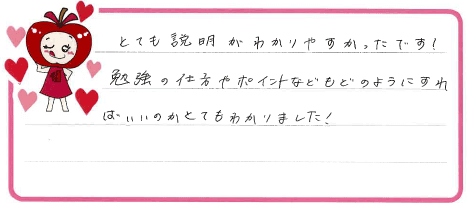 とても説明がわかりやすかったです!
勉強の仕方やポイントなどもどのようにすれ
ばいいのかとてもわかりました!